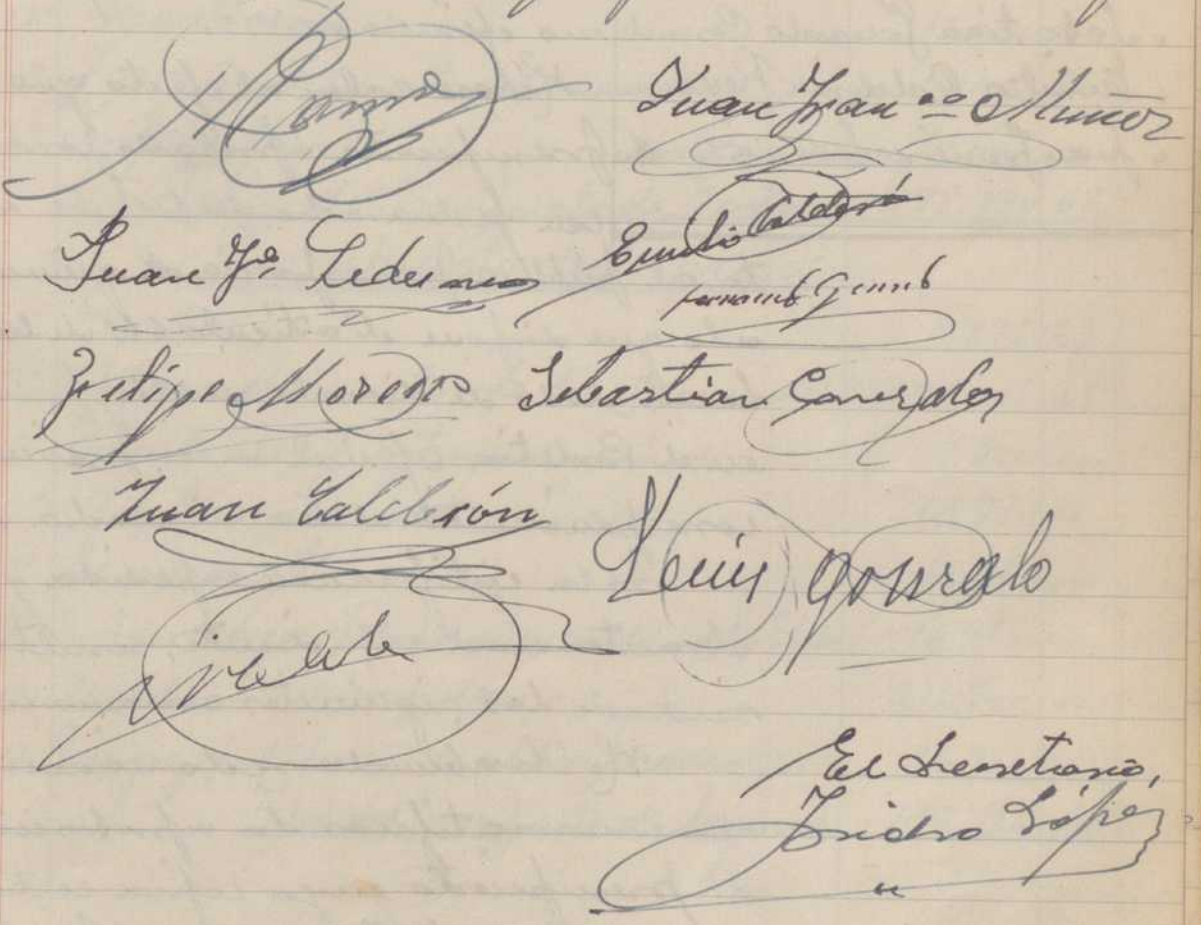 Juan Franco Muñoz
Juan Jº Ledesma
Emilio Calderón
Fernando
Felipe Moreno
Sebastian Gonzalez
Juan Calderón
Luis Gonzalo
El Secretario,
Isidro López